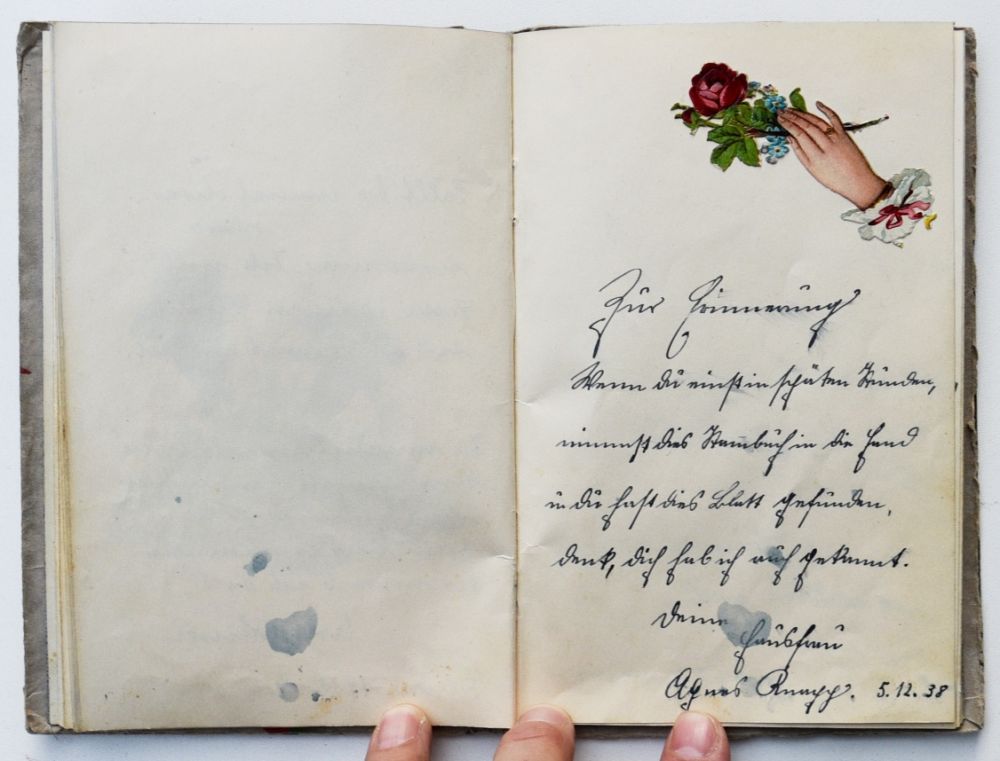 Zur Erinnerung
Wenn du einst in späten Stunden,
nimmst dies Stammbuch in die Hand
u du hast dies Blatt gefunden,
denk, dich hab ich auch gekannt.
Deine
Hausfrau
Agnes Knapp. 5.12.38